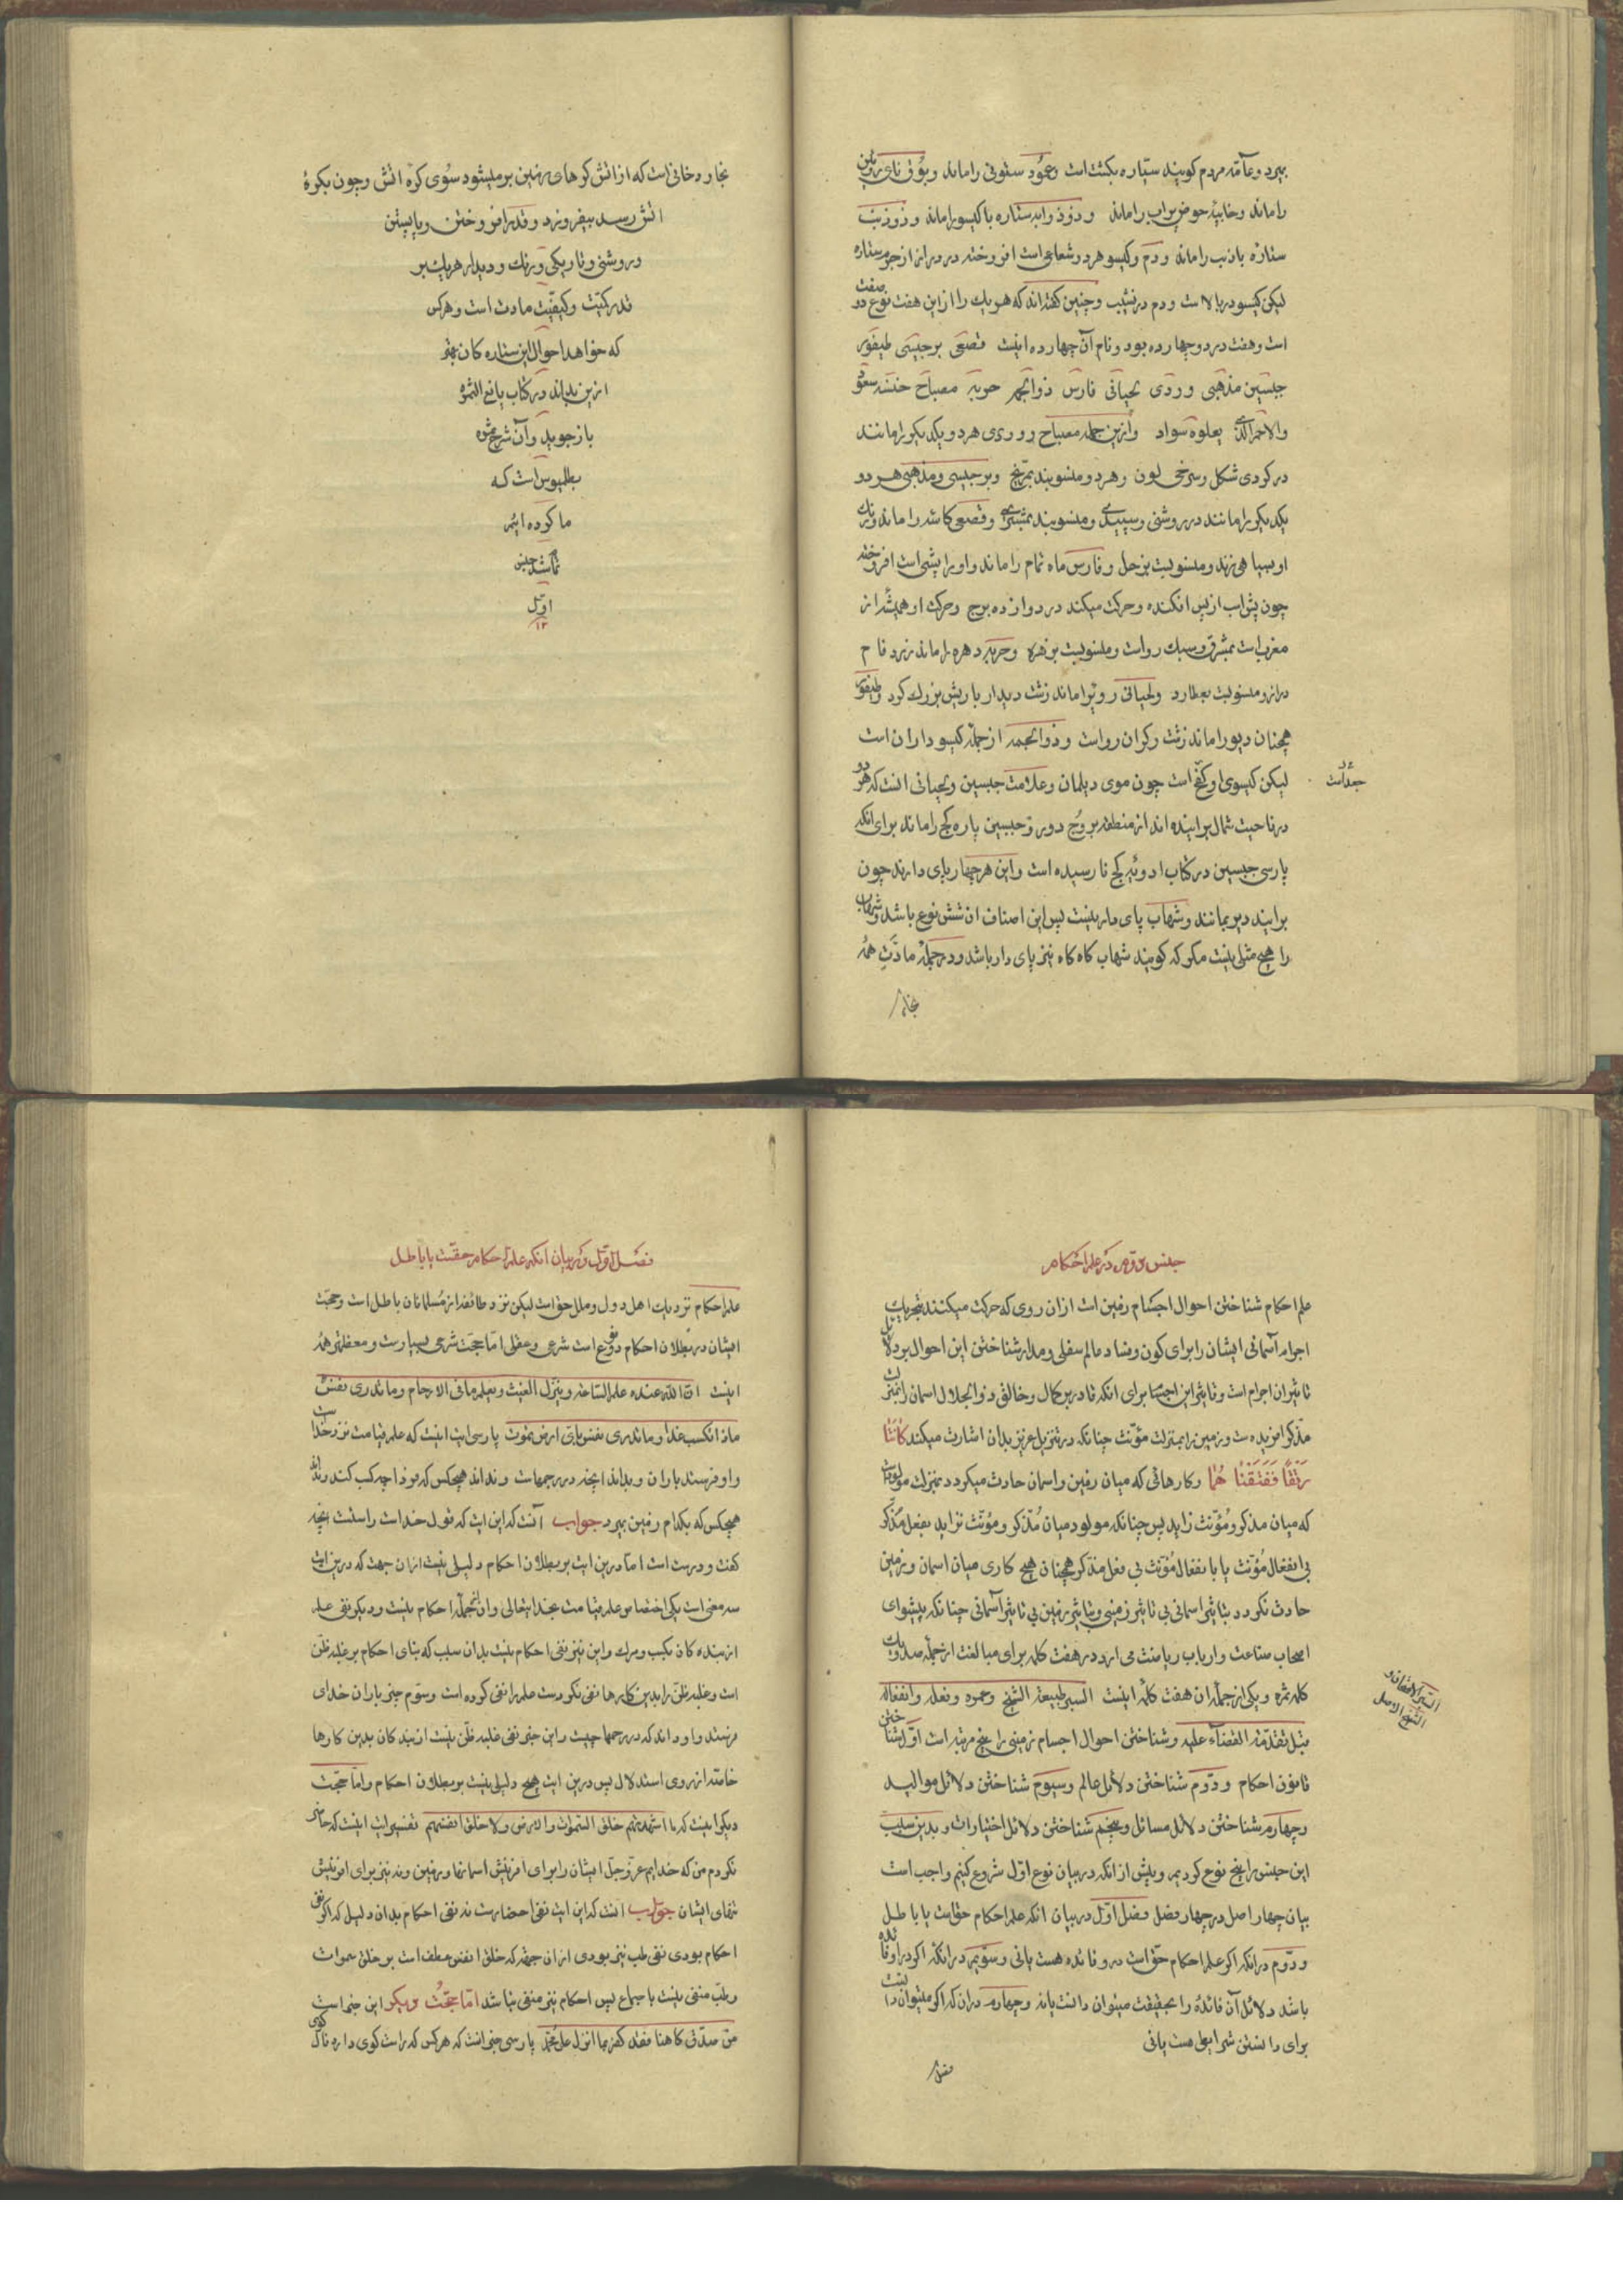 بمیرد وعامّه مردم کویند ستاره بکشت است وعمود ستونی را ماند وبوق نای رویین
را ماند وخابیه حوض پراب را ماند وذوذوابه ستاره با کیسو را ماند وذوذنب
ستاره با ذنب را ماند ودم وکیسو هر دو شعاعی است افروخته در درازا از جرم ستاره
لیکن کیسو در بالاست ودم در نشیب وچنین کفته‌اند که هر یک را از این هفت نوع دو صفت
است وهفت در دو چهارده بود ونام آن چهارده اینست قصعی برجیسی طیفور
جبسین مذهبی وردی لحیانی فارس ذوالجمه حربه مصباح
در کردی شکل وسرخی لون وهر دو منسوبند بمریخ وبرجیسی ومذهبی هر دو
یکدیکر را مانند در روشنی وسپیدی ومنسوبند بمشتری وقصعی کاسه را ماند ورنک
او بسیاهی زند ومنسوبست بزحل وفارس ماه تمام را ماند واو را پشی است افروخته
چون پش اسب از پس افکنده وحرکت میکند در دوازده برج وحرکت او همیشه از
مغرب است بمشرق وسبک رواست ومنسوبست بزهره وحربه دهره را ماند زرد فام
دراز ومنسوبست بعطارد ولحیانی رویی را ماند زشت دیدار با ریش بزرک کرد وطیفور
همچنان دیو را ماند زشت وکران رواست وذوالجمه از جمله کیسو داران است
لیکن کیسوی او کج است چون موی دیلمان وعلامت جبسین ولحیانی انست که هر دو
جعد است
در ناحیت شمال براینده‌اند از منطقه بروج دور وجبسین پاره کج را ماند برای انکه
پارسی جبسین در کتاب ادویه کج نارسیده است واین هر چهار پای دارند چون
برایند دیر بمانند وشهاب پای دار نیست پس این اصناف ان شش نوع باشد وشهاب
را هیچ مثلی نیست مکر که کویند شهاب کاه کاه نیز پای دار باشد ودر جمله مادّت همه
بخار
بخار دخانی است که از اتش کرهای زمین بر میشود سوی کره اتش وچون بکره
اتش رسد بیفروزد وقدر افروختن وپاییدن
وروشنی وتاریکی ورنک ودیدار هر یک بر
قدر کمّیت وکیفیّت مادت است وهر کس
که خواهد احوال این ستاره کان بهتر
ازین بداند در کتاب یانع الثمره
باز جوید وآن شرح ثمره
بطلمیوس است که
ما کرده ایم
تمام شد جنس
اوّل
۱۳
جنس دوّم در علم احکام
علم احکام شناختن احوال اجسام زمین است ازان روی که حرکت میکنند بتحریک
اجرام آسمانی ایشان را برای کون وفساد عالم سفلی ومدار شناختن این احوال بر دلایل
تاثیر ان اجرام است وتاثر این اجسام برای انکه قادر بر کمال وخالق ذوالجلال اسمان را بمنزلت
مذکّر افریده‌ست وزمین را بمنزلت مؤنّث چنانکه در تنزیل عزیز بدان اشارت میکند کانتا
رَتْقًا فَفَتَقْنَا هُمَا وکارهائی که میان زمین واسمان حادث میکردد بمنزلت مولود است
که میان مذکّر ومؤنّث زاید پس چنانکه مولود میان مذکّر ومؤنّث نزاید بفعل مذکّر
بی انفعال مؤنّث یا بانفعال مؤنّث بی فعل مذکّر همچنان هیچ کاری میان اسمان وزمین
حادث نکردد بتاثیر اسمانی بی تاثر زمینی وبتاثر زمین بی تاثیر آسمانی چنانکه پیشوای
اصحاب صناعت وارباب ریاضت می ارد در هفت کلمه برای مبالغت از جمله صد ویک
کلمه ثمره ویکی از جمله ان هفت کلمه اینست
قبل تقدّمة القضاء علیه وشناختن احوال اجسام زمینی را پنج مرتبه است اوّل شناختن
قانون احکام ودوّم شناختن دلائل عالم وسیوم شناختن دلائل موالید
وچهارم شناختن دلائل مسائل وپنجم شناختن دلائل اختیارات وبدین سبب
این جنس را پنج نوع کردیم وپیش از انکه در بیان نوع اوّل شروع کنیم واجب است
بیان چهار اصل در چهار فصل فصل اوّل در بیان انکه علم احکام حق است یا باطل
ودوّم در انکه اکر علم احکام حق است درو فائده هست یا نی وسوّم در انکه اکر در او فائده
باشد دلائل آن فائده را بحقیقت میتوان دانست یا نه وچهارم در ان که اکر میتوان دانست
برای دانستن شرایطی هست یا نی
فصل
فصل اوّل در بیان انکه علم احکام حقست یا باطل
علم احکام نزدیک اهل دول وملل حق است لیکن نزد طائفه از مسلمانان باطل است وحجّت
ایشان در بطلان احکام دو نوع است شرعی وعقلی امّا حجّت شرعی بسیار است ومعظم همه
اینست ان الله عنده علم الساعة وینزل الغیث ویعلم ما فی الارحام وما تدری نفس
ماذا تکسب غدا وما تدری نفس بای ارض تموت پارسی ایت اینست که علم قیامت نزد خداست
واو فرستد باران وبداند انچه در رحمهاست ونداند هیچکس که فردا چه کسب کند ونداند
هیچکس که بکدام زمین بمیرد جواب آنست که این ایت که قول خداست راست انچه
کفت ودرست است امّا درین ایت بر بطلان احکام دلیلی نیست ازان جهت که درین ایت
سه معنی است یکی اختصاص علم قیامت بخدای تعالی وان از جمله احکام نیست ودیکر نفی علم
از بنده کان بکسب ومرک واین نیز نفی احکام نیست بدان سبب که بنای احکام بر غلبه ظنّ
است وغلبه ظنّ را بدین کارها نفی نکردست علم را نفی کرده است وسوّم خبر باران خدای
فرستد واو داند که در رحمها چیست واین خبر نفی غلبه ظنّ نیست از بنده کان بدین کارها
خاصّه از روی استدلال پس درین ایت هیچ دلیلی نیست بر بطلان احکام وامّا حجّت
دیکر اینست که ما اشهدتهم خلق السموات والارض ولا خلق انفسهم تفسیر ایت اینست که حاضر
نکردم من که خدایم عزّ وجلّ ایشان را برای افرینش اسمانها وزمین ونه نیز برای افرینش
تنهای ایشان جواب انست که این ایت نفی احضارست نه نفی احکام بدان دلیل که اکر نفی
احکام بودی نفی طب نیز بودی ازان جهة که خلق انفس معطف است بر خلق سموات
وطبّ منفی نیست باجماع پس احکام نیز منفی نباشد امّا حجّت دیکر این خبر است
من صدّق کاهنا فقد کفر بما انزل علی محمّد پارسی خبر انست که هر کس که راست کوی دارد فال کوی